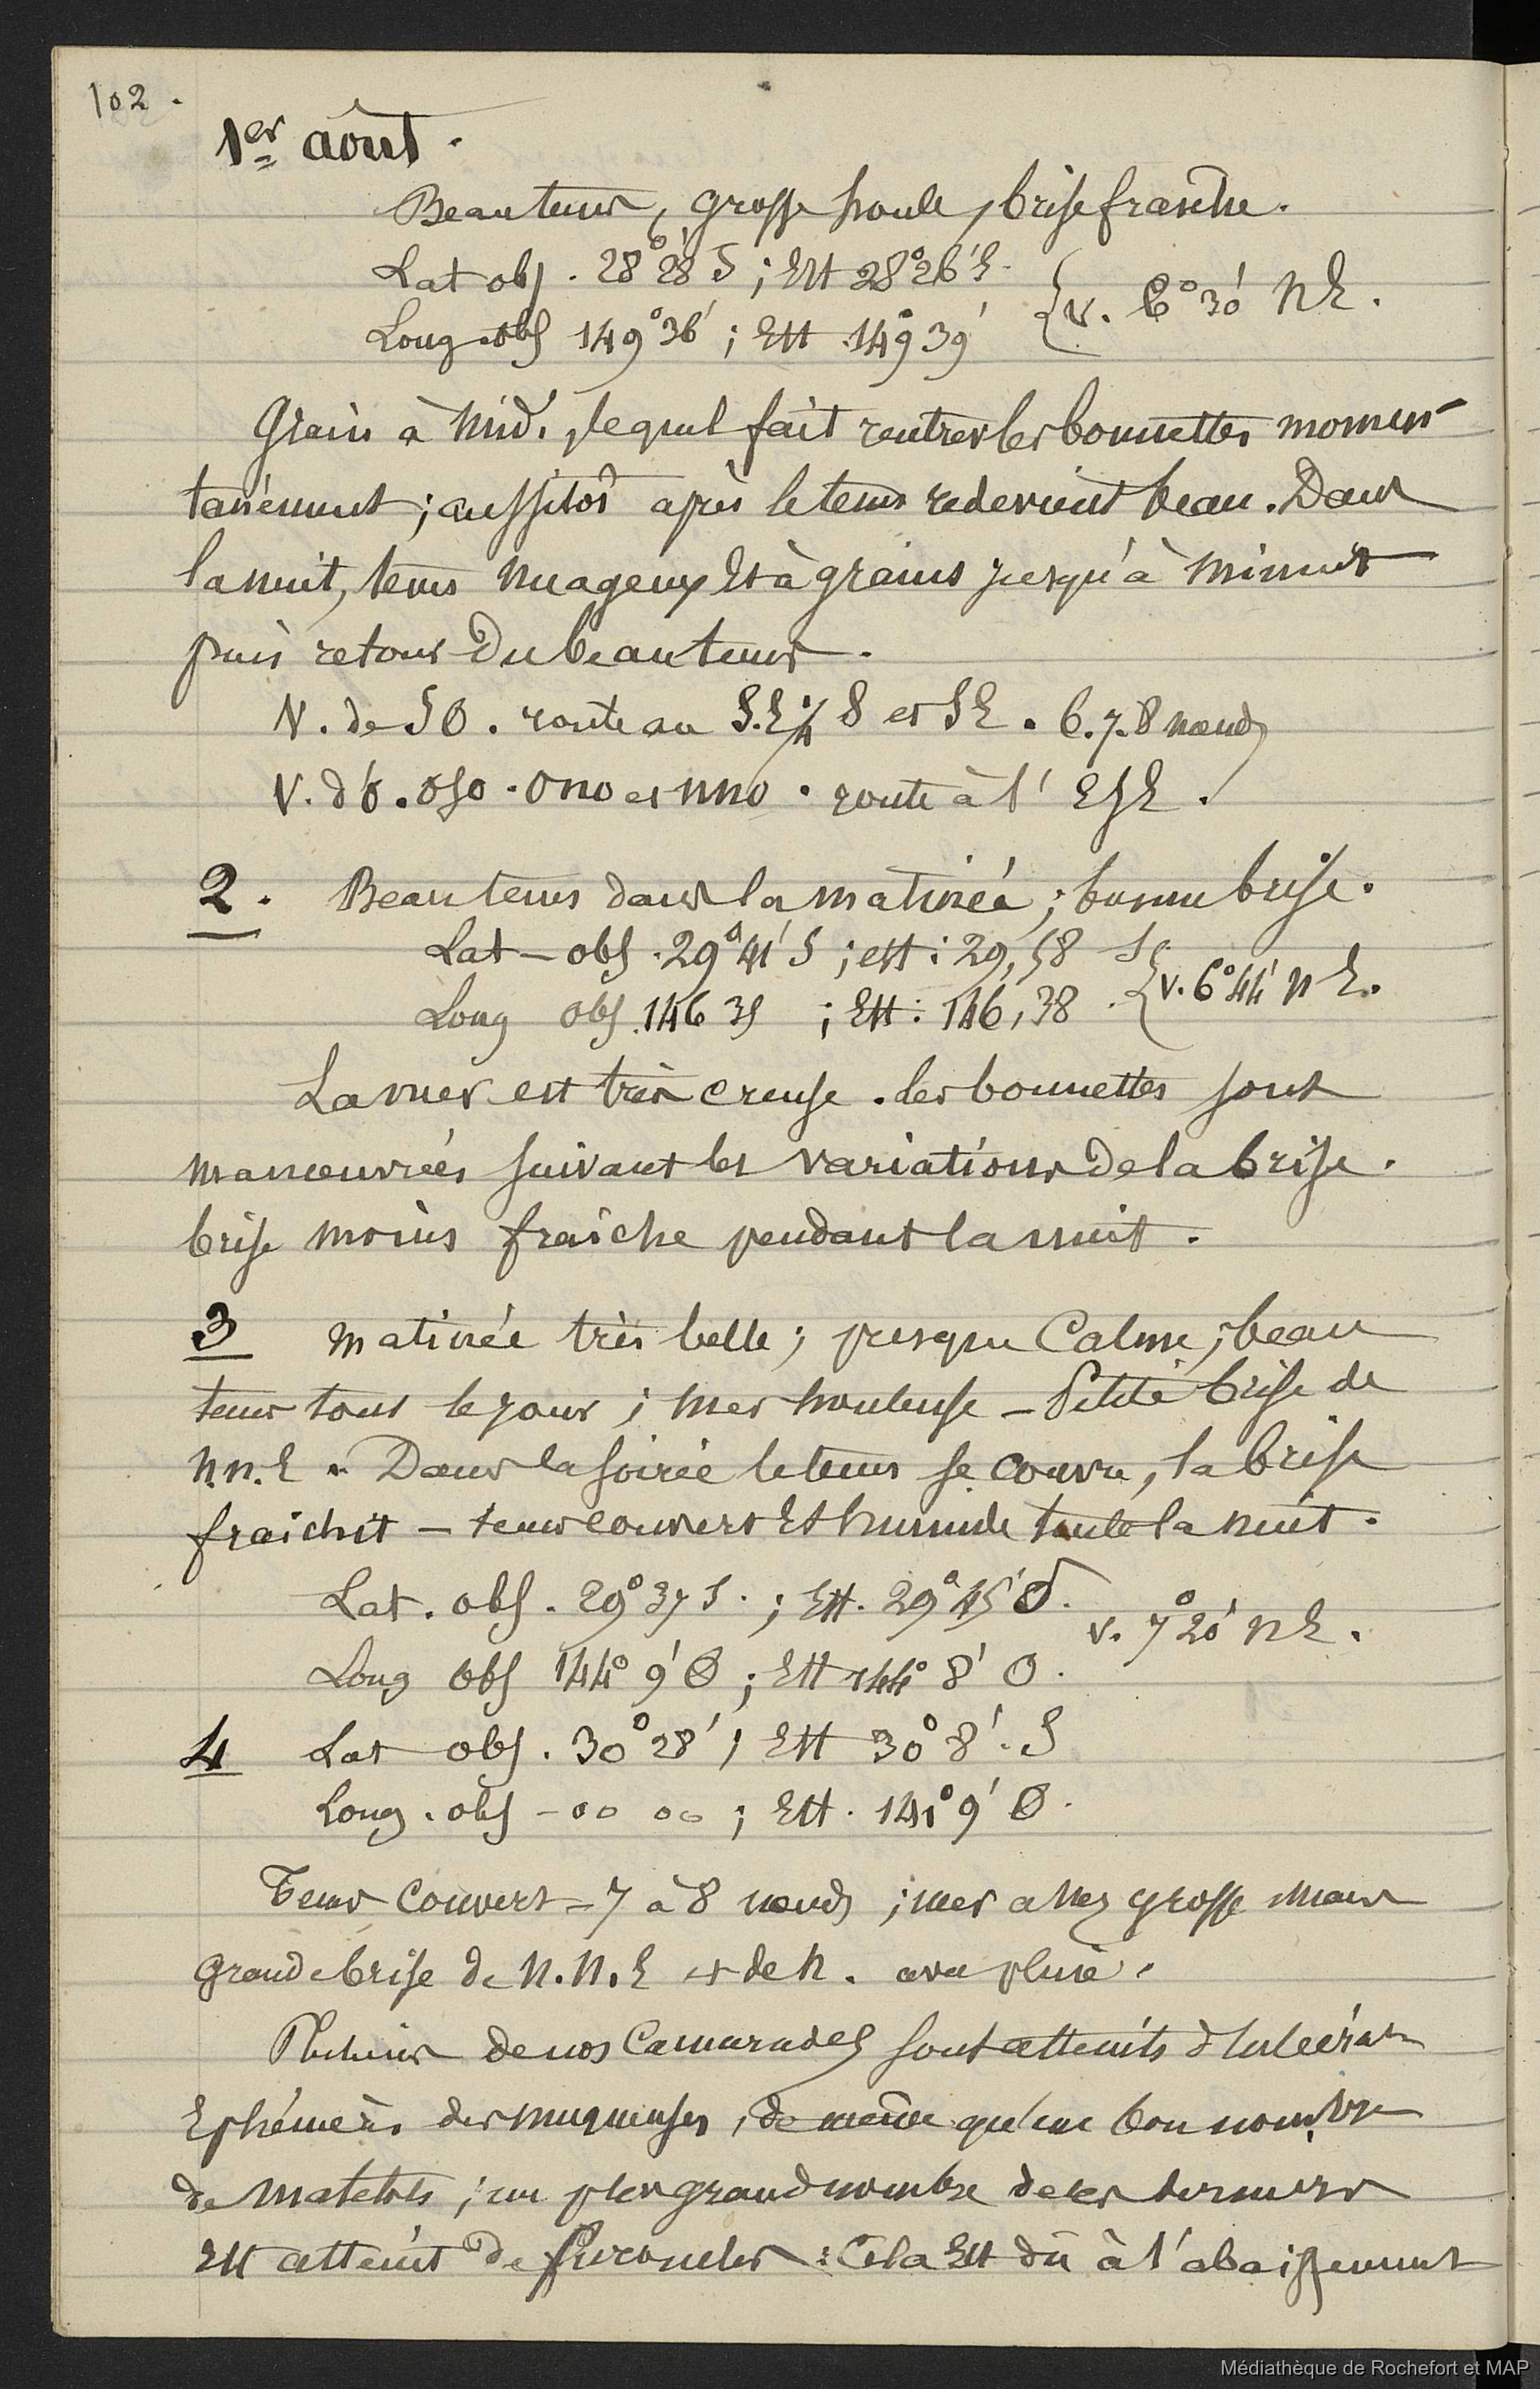 102.
1er août.
Beau tems, grosse houle, brise franche.
Lat obs. 28°28' S ; Est 28°26' S.
Long obs 149°36' ; Est 149°39' { v. 6°30' NE.
Grain à midi, lequel fait rentrer les bonnettes momen-
tanément ; aussitôt après le tems redevient beau. Dans
la nuit, tems nuageux et à grains jusqu'à minuit
puis retour du beau tems.
V. de SO. route au S.E 1/4 S et SE. 6.7.8 nœuds
V. d'O. OSO. ONO et NNO. route à l'ESE.
2. Beau tems dans la matinée ; bonne brise.
Lat - obs. 29°41' S ; est : 29,58 S
Long obs. 146 35 ; Est : 146,38. { v. 6°44' NE.
La mer est très creuse. les bonnettes sont
manœuvrées suivant les variations de la brise.
brise moins fraîche pendant la nuit.
3 Matinée très belle ; presque calme ; beau
tems tout le jour ; mer houleuse - Petite brise de
N.N.E. Dans la soirée le tems se couvre, la brise
fraichit - tems couvert et humide toute la nuit.
Lat. obs. 29°37 S. ; Est. 29°45' S.
v. 7°20' NE.
Long obs 144° 9' O ; Est 144° 8' O.
4 Lat obs. 30°28' ; Est 30°8'. S
Long. obs - 00 00 ; Est. 141°9' O.
Tems couvert - 7 à 8 nœuds ; mer assez grosse mais
grande brise de N.N.E et de N. avec pluie.
Plusieurs de nos camarades sont atteints d'ulcérat.
Ephémères des muqueuses, de même qu'un bon nombre
de matelots ; un plus grand nombre de ces derniers
est atteint de furoncles : Cela est dû à l'abaissement
Médiathèque de Rochefort et MAP